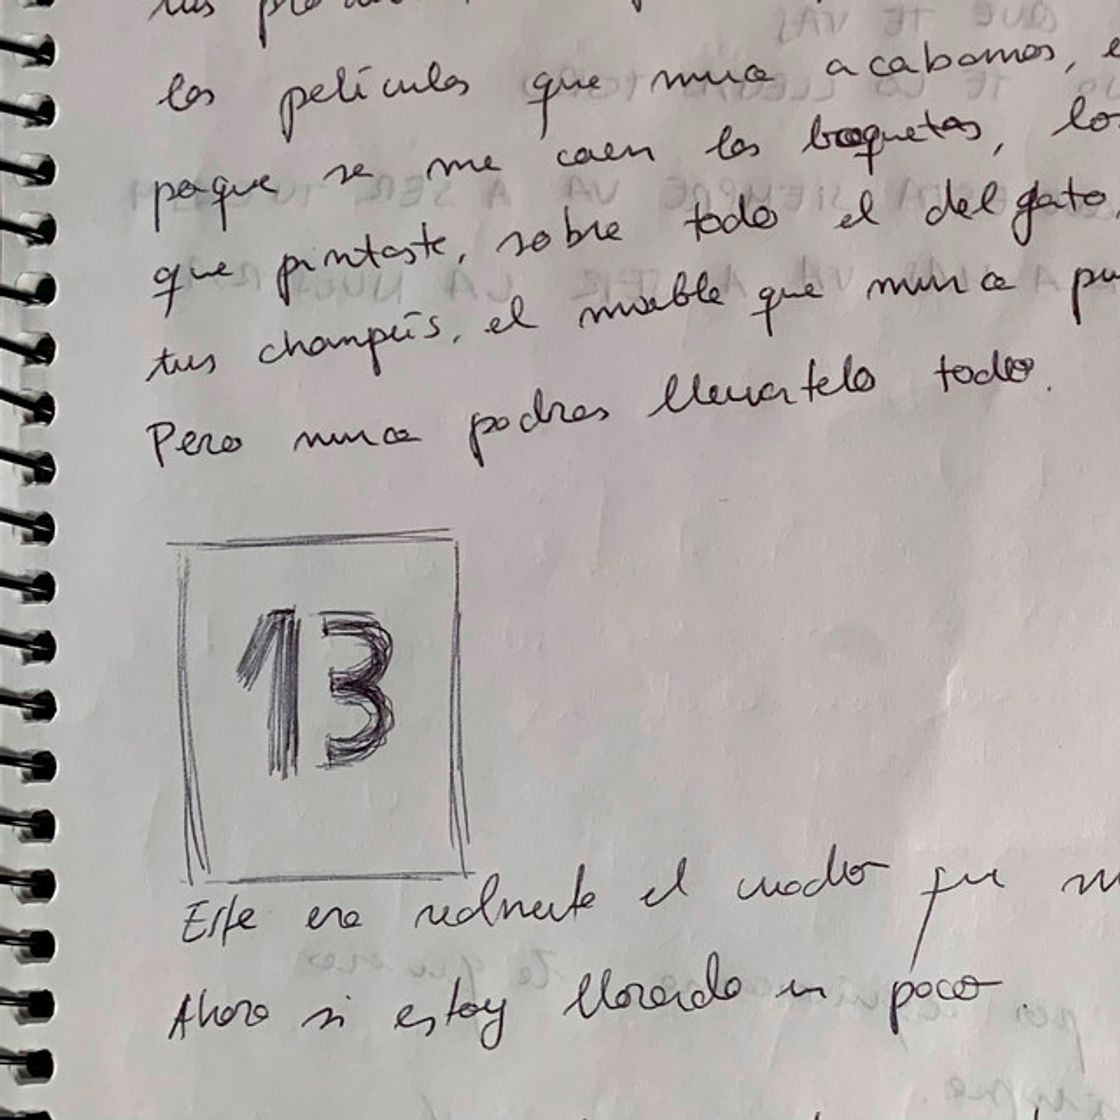 las películas que nunca acabamos, e
poque se me caen las baquetas, lo
que pintaste, sobre todo el del gato
tus champús, el mueble que nunca pu
Pero nunca podras llevartelo todo.
13
Este era realmente el cuadro que
Ahora si estoy llorando un poco.